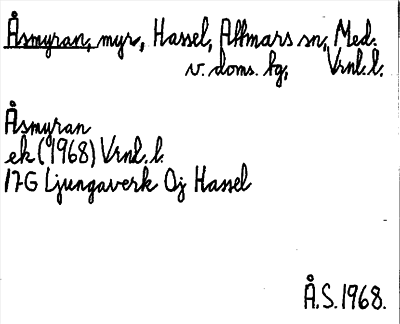 Åsmyran, myr, Hassel, Attmars sn, Med.
v. doms. hg, Vrnl. l.
Åsmyran
ek (1968) Vrnl. l.
17G Ljungaverk 0j Hassel
Å.S. 1968.